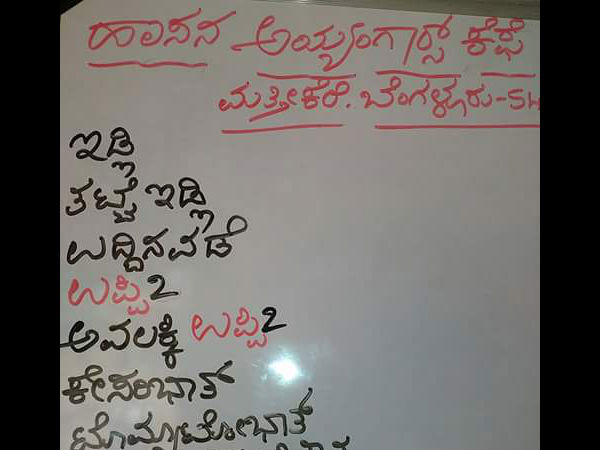 ಹಾಸನ ಅಯ್ಯಂಗಾರ್ಸ್ ಕೆಫೆ
ಮತ್ತೀಕೆರೆ. ಬೆಂಗಳೂರು-54
ಇಡ್ಲಿ
ತಟ್ಟೆ ಇಡ್ಲಿ
ಉದ್ದಿನವಡೆ
ಉಪ್ಪಿ2
ಅವಲಕ್ಕಿ ಉಪ್ಪಿ2
ಕೇಸರಿಭಾತ್
ಟೊಮ್ಯಾಟೋಭಾತ್